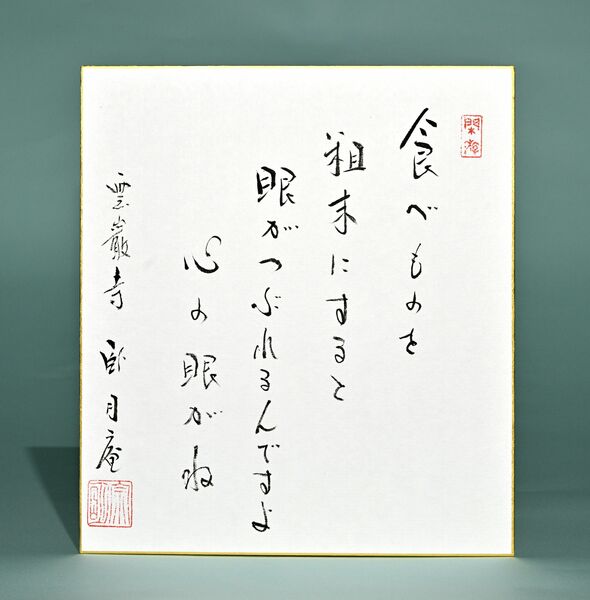 食べものを
粗末にすると
眼がつぶれるんですよ
心の眼がね
雲巖寺 卧月庵